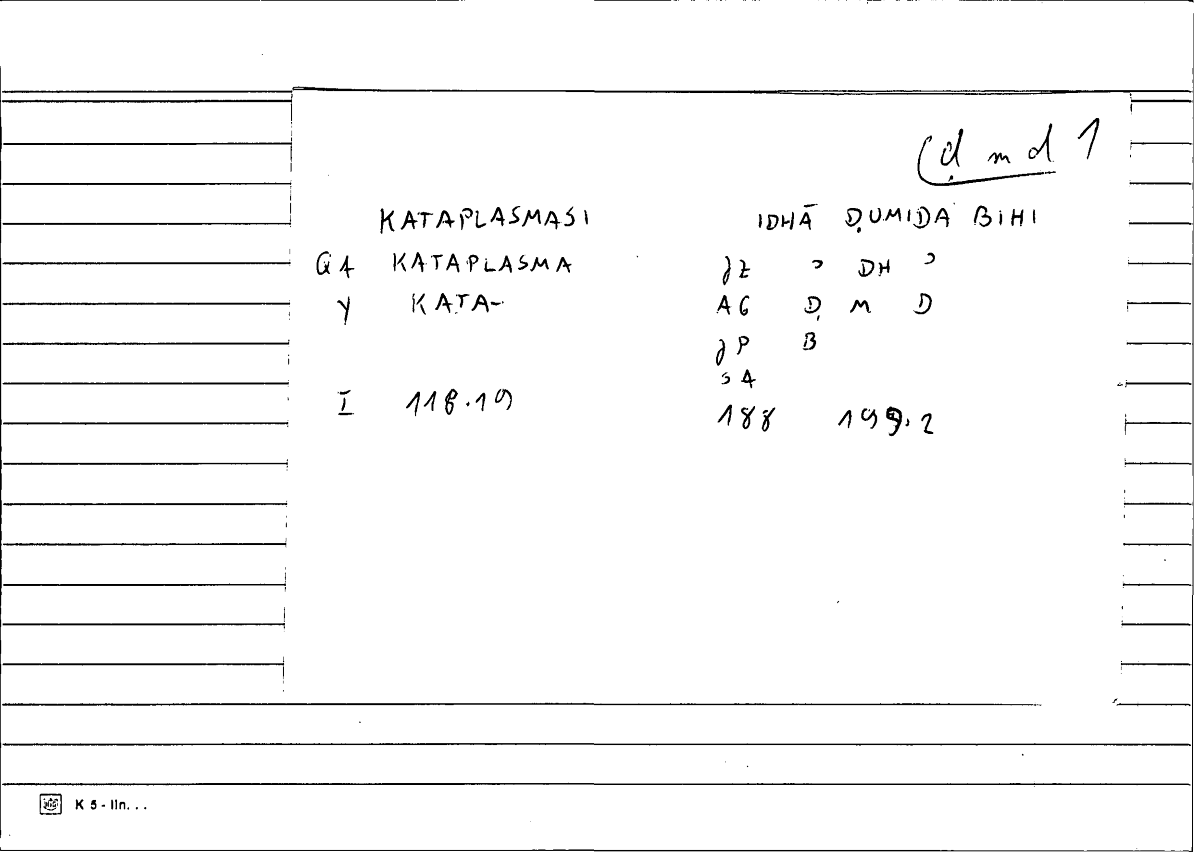 ḍ m d 1
KATAPLASMASI IDHĀ ḌUMIDA BIHI
G4 KATAPLASMA JZ ʾ DH ʾ
Y KATA- AG Ḍ M D
JP B
S4
I 118.19 188 199.2
K 5 - lin. . .